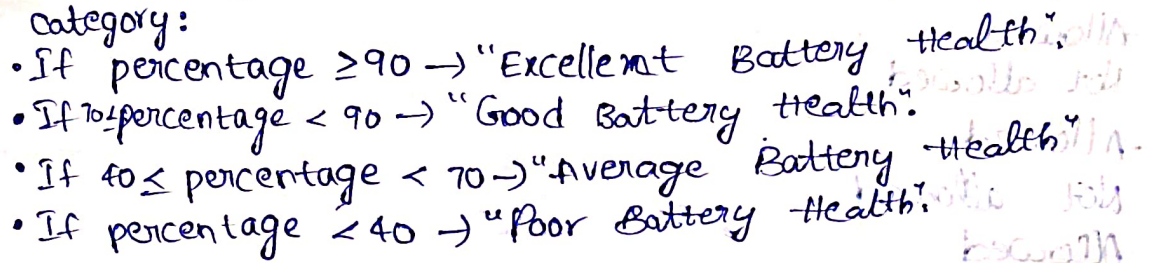 Category:
• If percentage ≥90 → "Excellent Battery Health".
• If 70≤percentage < 90 → "Good Battery Health".
• If 40≤ percentage < 70 → "Average Battery Health"
• If percentage <40 → "Poor Battery Health".